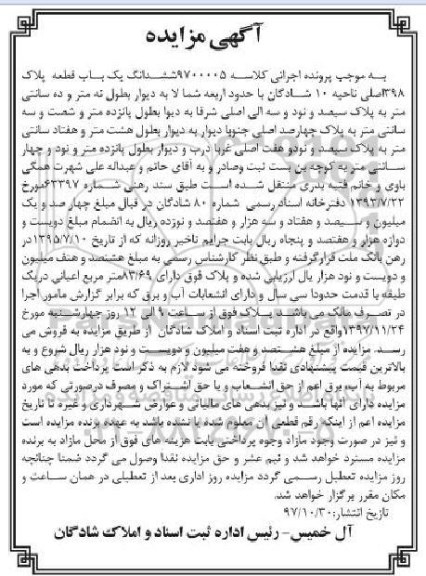 آگهی مزایده
به موجب پرونده اجرائی کلاسه ۹۷۰۰۰۰۵ ششدانگ یک باب قطعه پلاک
۳۹۸اصلی ناحیه ۱۰ شادگان با حدود اربعه شما لا به دیوار بطول نه متر و ده سانتی
متر به پلاک سیصد و نود و سه الی اصلی شرقا به دیوا بطول پانزده متر و شصت و سه
سانتی متر به پلاک چهارصد اصلی جنوبا دیوار به دیوار بطول هشت متر و هفتاد سانتی
متر به پلاک سیصد و نودو هفت اصلی غربا درب و دیوار بطول پانزده متر و نود و چهار
سانتی متر به کوچه بن بست ثبت وصادر و به آقای حاتم و عبداله علی شهرت همگی
باوی و خانم فتیه بدری منتقل شده است طبق سند رهنی شماره ۶۲۳۹۷مورخ
۱۳۹۳/۷/۲۲ دفترخانه اسناد رسمی شماره ۸۰ شادگان در قبال مبلغ چهار صد و یک
میلیون و سیصد و هفتاد و سه هزار و هفتصد و نوزده ریال به انضمام مبلغ دویست و
دوازه هزار و هفتصد و پنجاه ریال بابت جرایم تاخیر روزانه که از تاریخ ۱۳۹۵/۷/۱۰در
رهن بانک ملت قرارگرفته و طبق نظر کارشناس رسمی به مبلغ هشتصد و هفت میلیون
و دویست و نود هزار یال ارزیابی شده و پلاک فوق دارای ۸۳/۶۹متر مربع اعیانی در یک
طبقه با قدمت حدودا سی سال و دارای انشعابات آب و برق که برابر گزارش مامور اجرا
در تصرف مالک می باشد پلاک فوق از ساعت ۹ الی ۱۲ روز چهارشنبه مورخ
۱۳۹۷/۱۱/۲۴واقع در اداره ثبت اسناد و املاک شادگان از طریق مزایده به فروش می
رسد. مزایده از مبلغ هشتصد و هفت میلیون و دویست و نود هزار ریال شروع و به
بالاترین قیمت پیشنهادی نقدا فروخته می شود لازم به ذکر است پرداخت بدهی های
مربوط به آب، برق اعم از حق انشعاب و یا حق اشتراک و مصرف درصورتی که مورد
مزایده دارای آنها باشد و نیز بدهی های مالیاتی و عوارض شهرداری و غیره تا تاریخ
مزایده اعم از اینکه رقم قطعی آن معلوم شده یا نشده باشد به عهده برنده مزایده است
و نیز در صورت وجود مازاد وجوه پرداختی بابت هزینه های فوق از محل مازاد به برنده
مزایده مسترد خواهد شد و نیم عشر و حق مزایده نقدا وصول می گردد ضمنا چنانچه
روز مزایده تعطیل رسمی گردد مزایده روز اداری بعد از تعطیلی در همان ساعت و
مکان مقرر برگزار خواهد شد.
تاریخ انتشار: ۹۷/۱۰/۳۰
آل خمیس- رئیس اداره ثبت اسناد و املاک شادگان